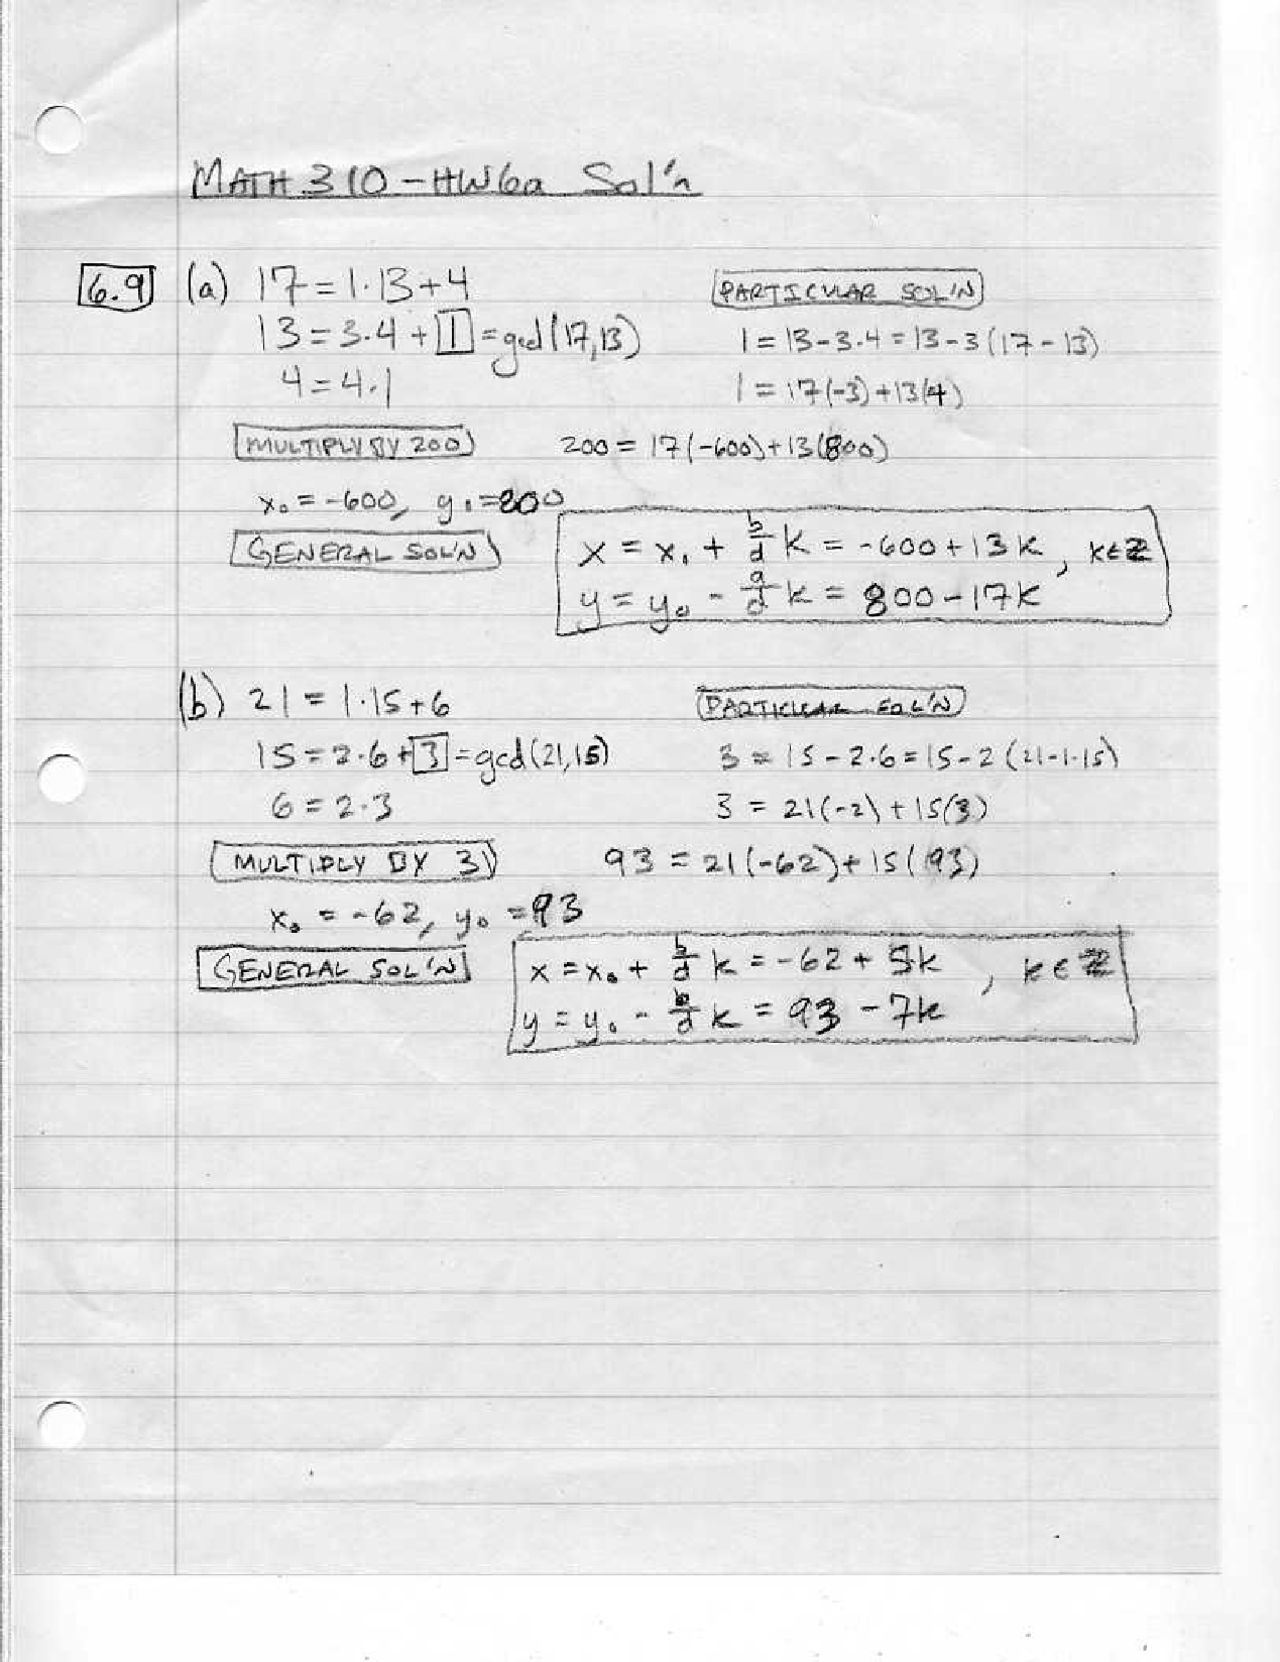 MATH 310 - HW6a Sol'n
6.9 (a) 17 = 1·13 + 4
13 = 3·4 + 1 = gcd(17,13)
4 = 4·1
PARTICULAR SOL'N
1 = 13 - 3·4 = 13 - 3(17 - 13)
1 = 17(-3) + 13(4)
MULTIPLY BY 200 200 = 17(-600) + 13(800)
x₀ = -600, y₀ = 800
GENERAL SOL'N
x = x₀ + b/d k = -600 + 13k, k∈ℤ
y = y₀ - a/d k = 800 - 17k
(b) 21 = 1·15 + 6
15 = 2·6 + 3 = gcd(21,15)
6 = 2·3
PARTICULAR SOL'N
3 = 15 - 2·6 = 15 - 2(21 - 1·15)
3 = 21(-2) + 15(3)
MULTIPLY BY 31 93 = 21(-62) + 15(93)
x₀ = -62, y₀ = 93
GENERAL SOL'N
x = x₀ + b/d k = -62 + 5k, k∈ℤ
y = y₀ - b/d k = 93 - 7k